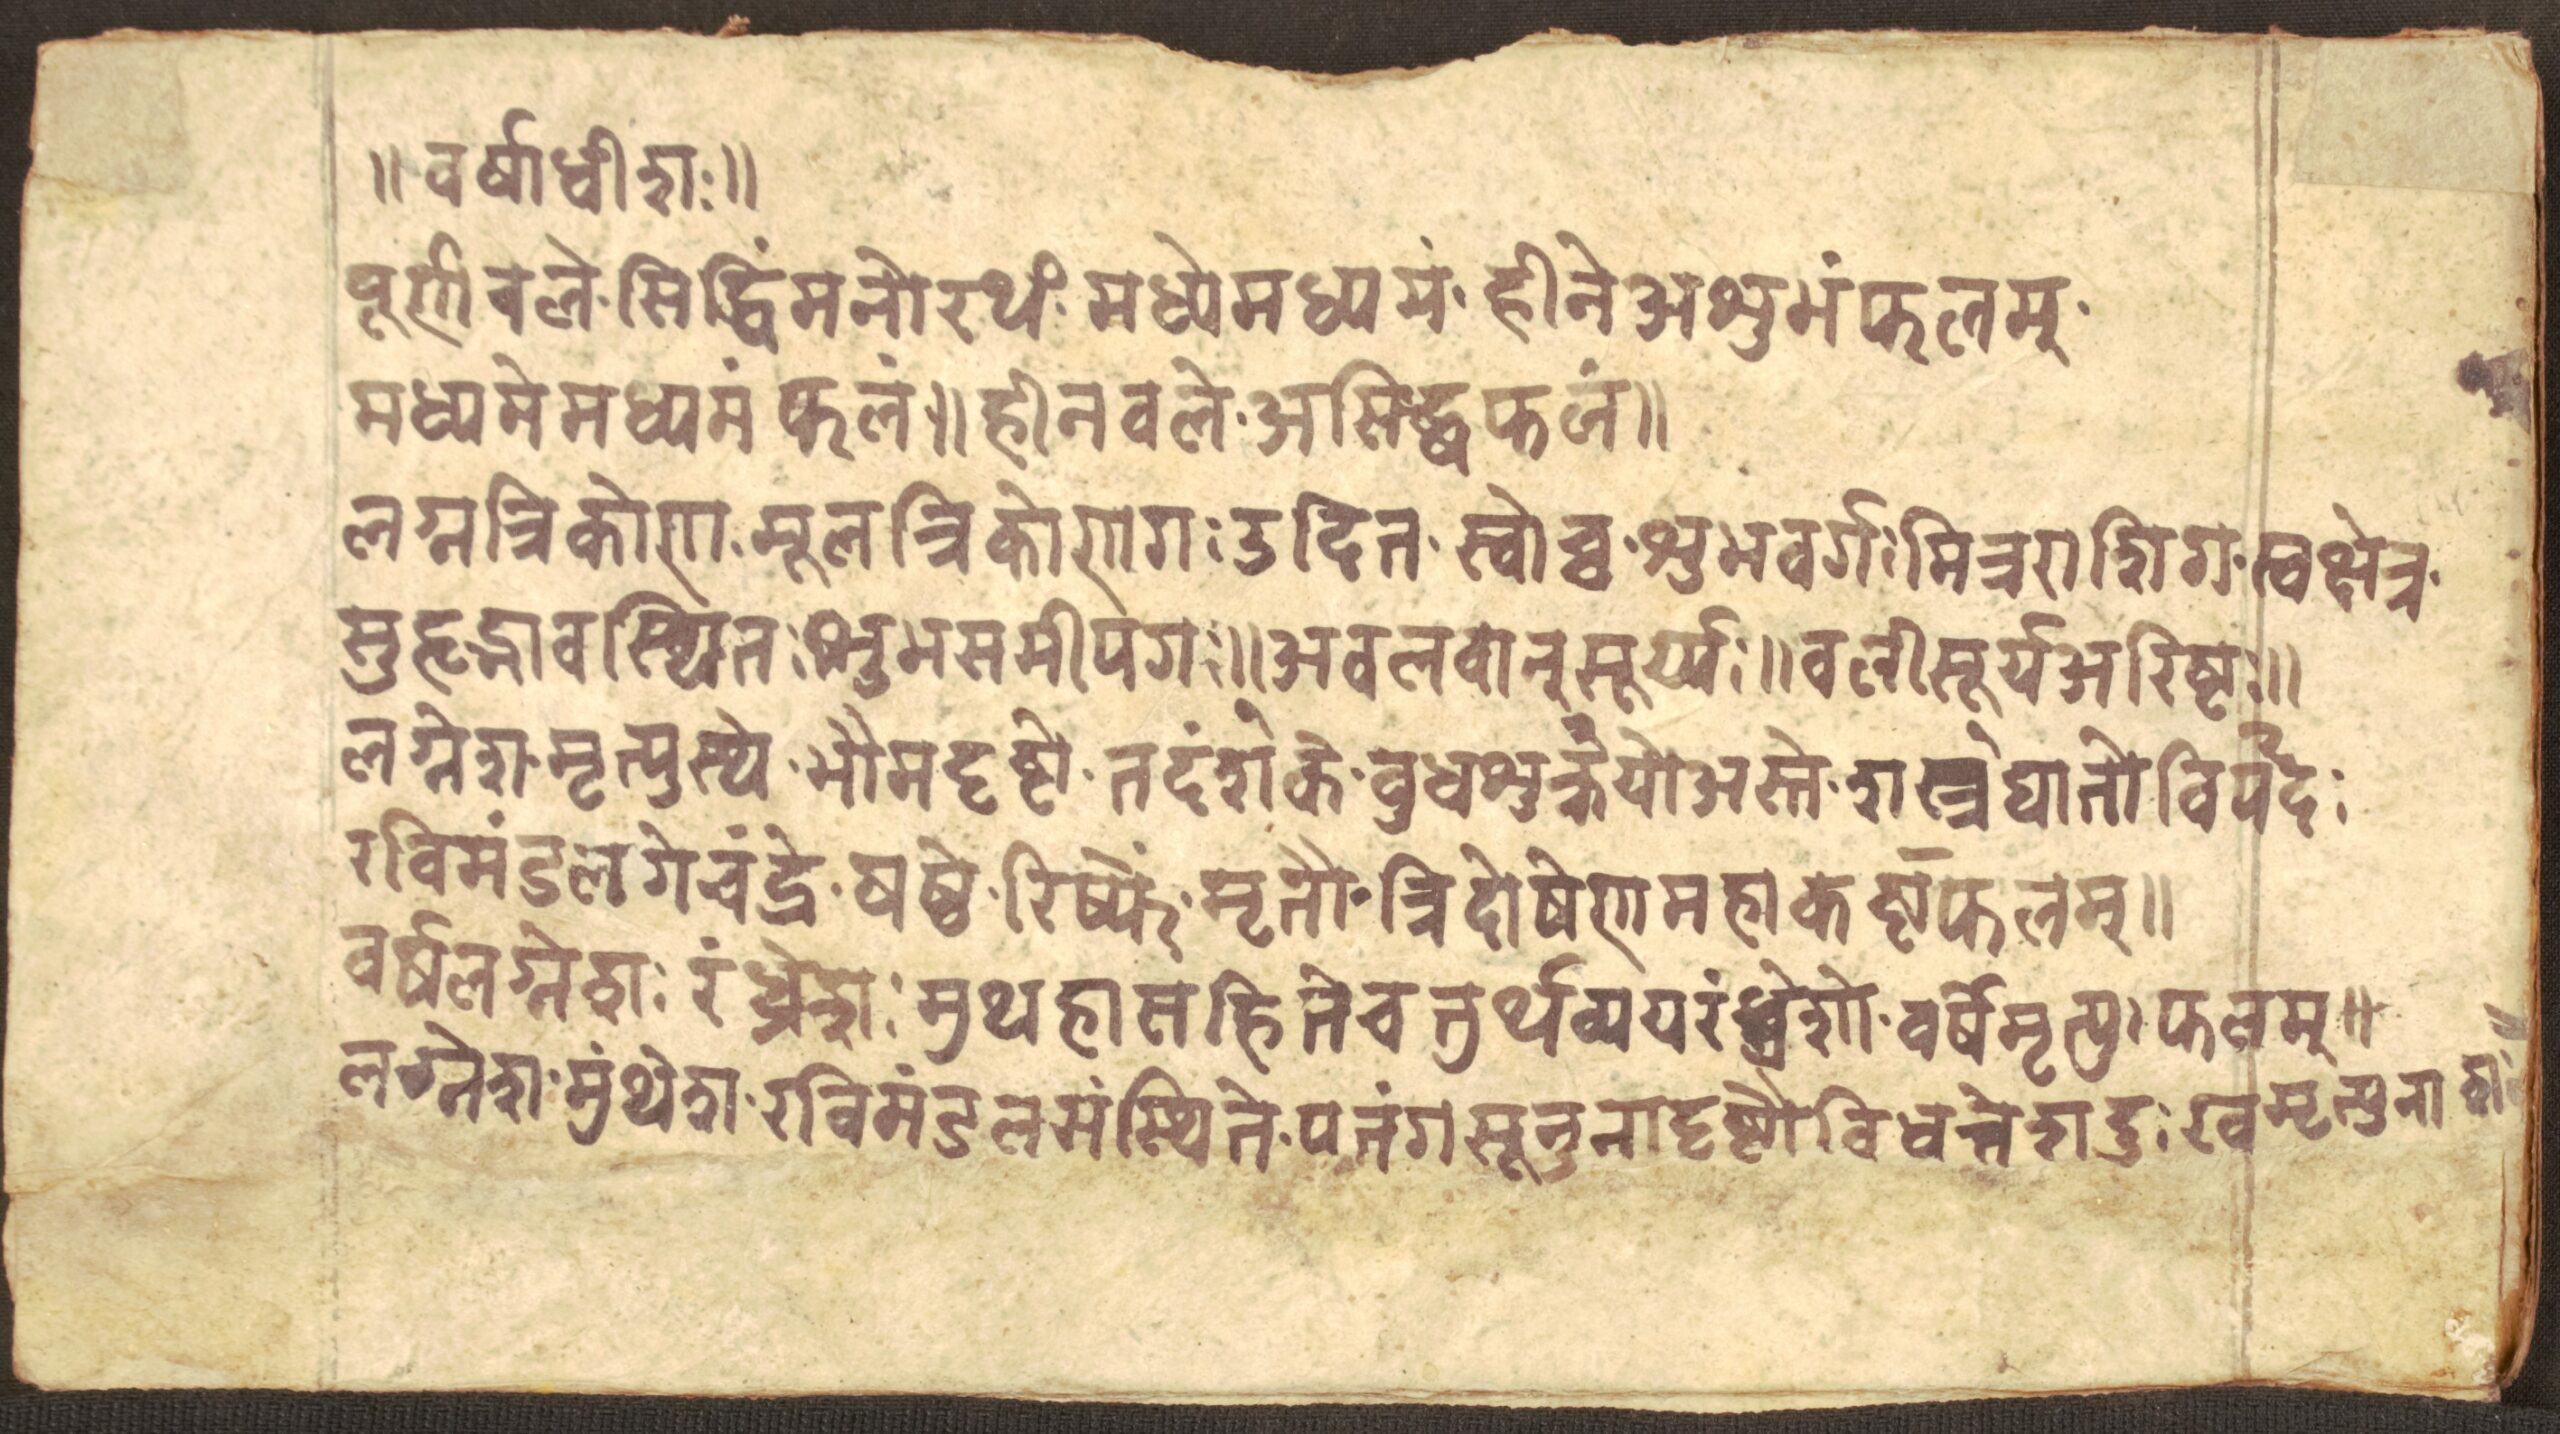 ॥ वर्षाधीशः ॥
पूर्णाबले· सिद्धिंमनोरथं· मध्येमध्यमं· हीनेअशुभंफलम्·
मध्यमेमध्यमं फलं॥ हीनवले·असिद्धफलं॥
लग्नत्रिकोण·मूलत्रिकोणगः उदित· स्वोच्च·शुभवर्गः मित्रराशिग·स्वक्षेत्र·
सुहृद्भावस्थितः शुभसमीपगः॥ अवलवान्सूर्य्यः॥ वलीसूर्यअरिष्टः॥
लग्नेश·मृत्युस्थे·भौमदृष्टो· तदंशके·वुधशुक्रयोअस्ते·शस्त्रंघातोविपदः
रविमंडलगेचंद्रे·षष्ठे·रिष्फे·मृतौ·त्रिदोषेणमहाकष्टंफलम्॥
वर्षलग्नेशः रंध्रेशः मुथहासहितेचतुर्थव्ययरंध्रेशो·वर्षेमृत्युः फलम्॥
लग्नेश·मुंथेश·रविमंडलसंस्थिते·पतंगसूनुनादृष्टौविधत्तेशदुः खमृत्युना